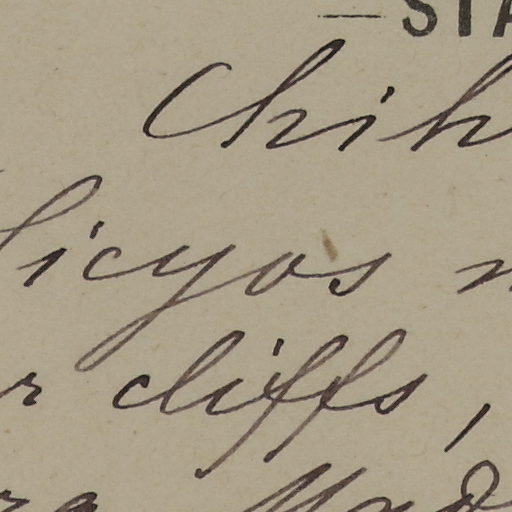 — STA
Chih
Sicyos n
r cliffs,
ra Mad